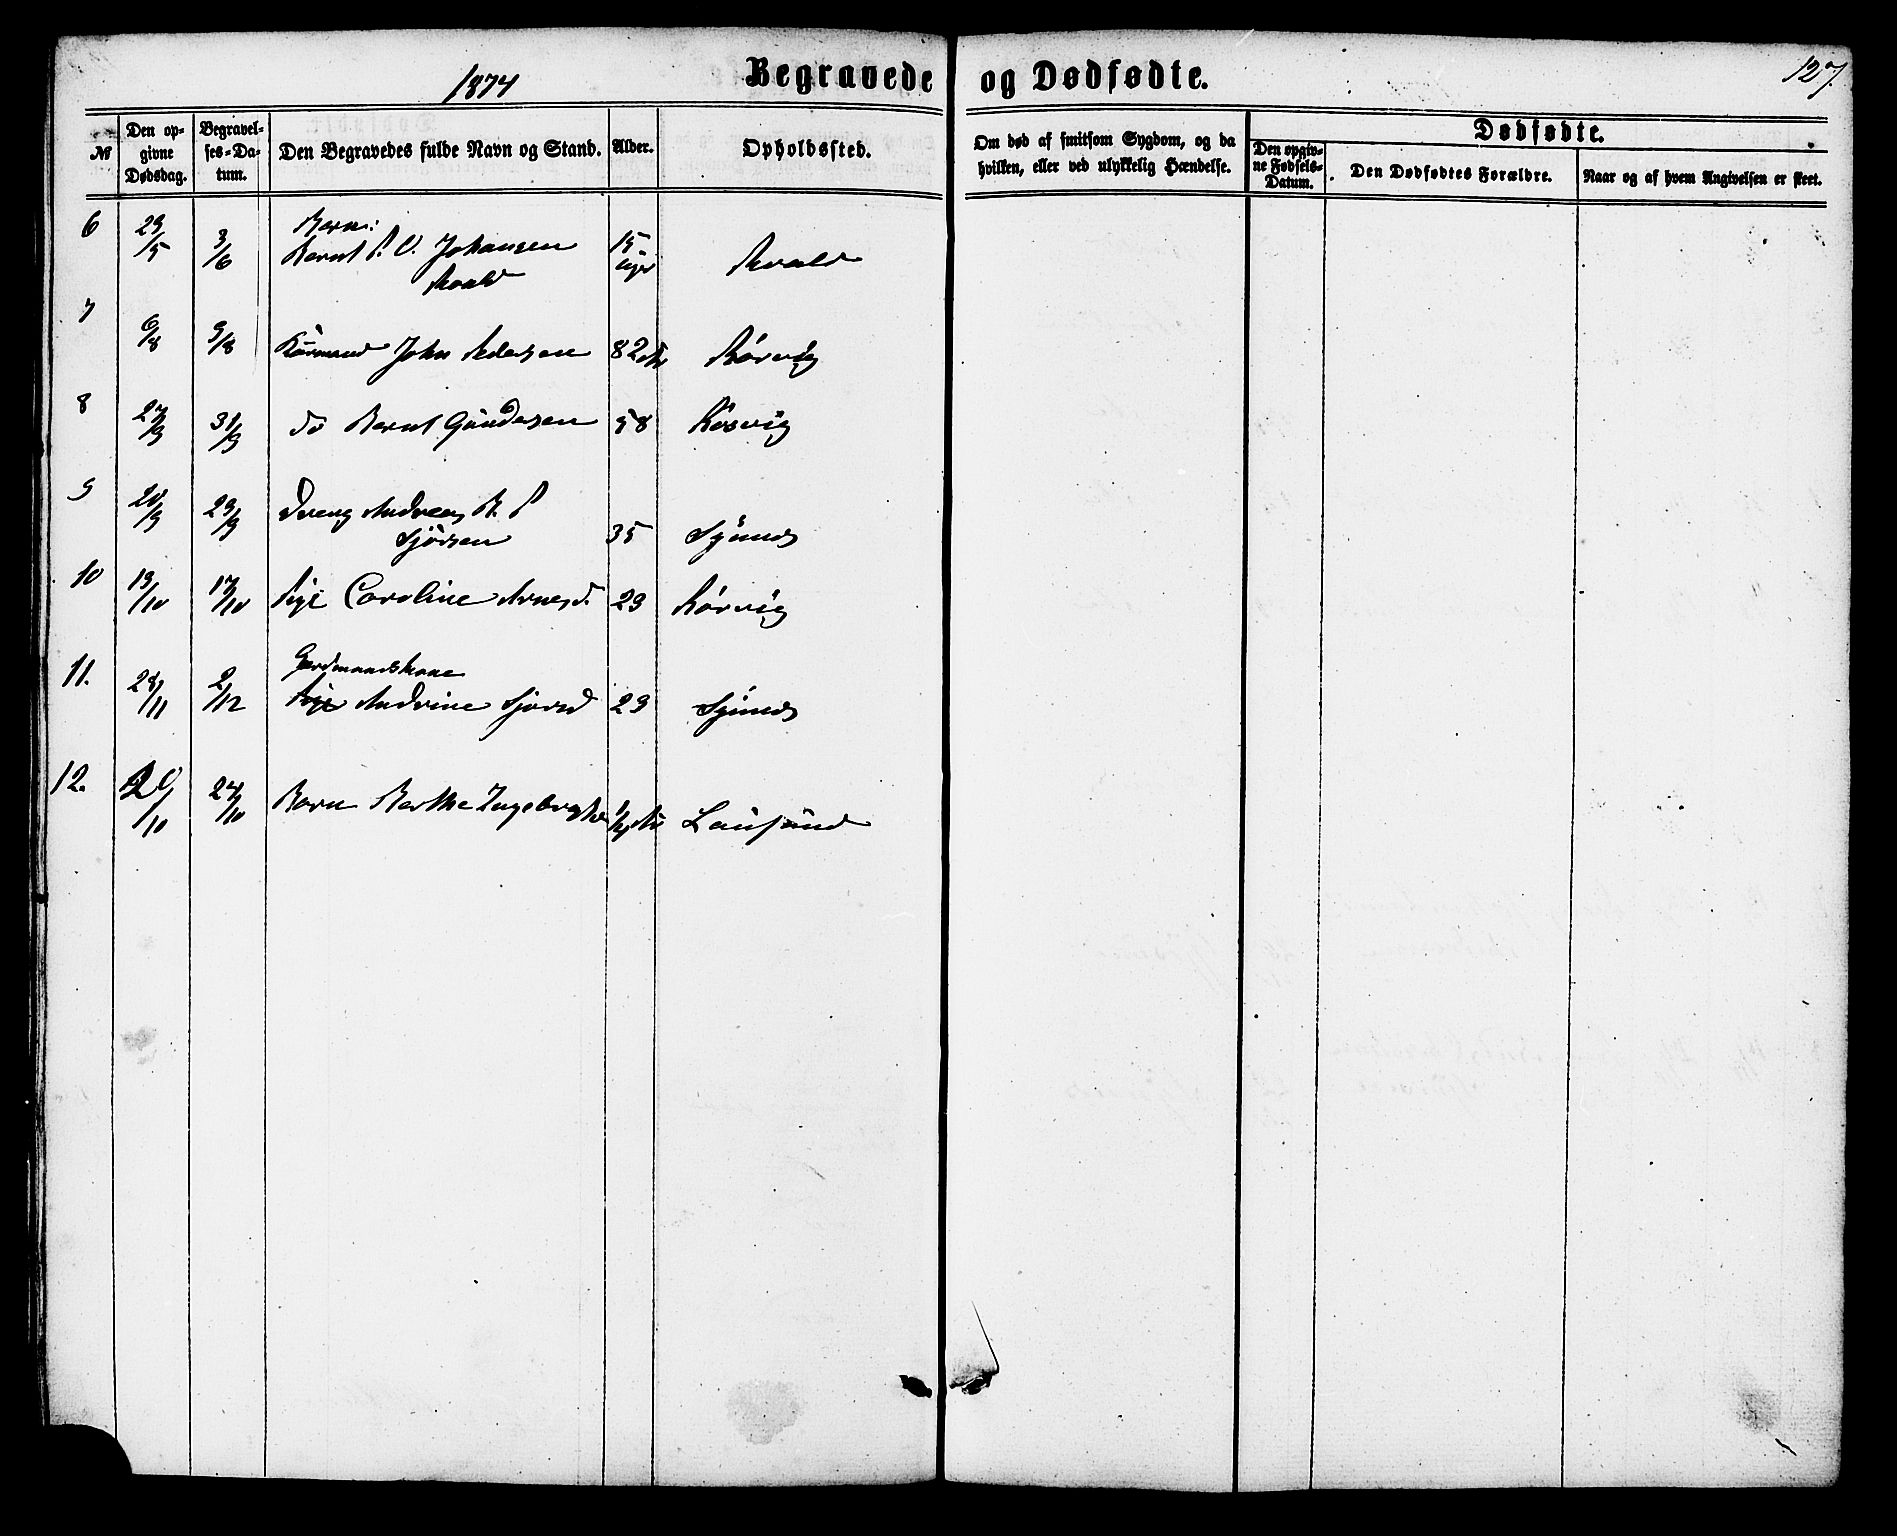 1874
Begravede og Dødfødte.
127.
№
Den op-
givne
Dødsdag.
Begravel-
ses-Da-
tum.
Den Begravedes fulde Navn og Stand.
Alder.
Opholdssted.
Om død af smitsom Sygdom, og da
hvilken, eller ved ulykkelig Hændelse.
Dødfødte.
Den opgiv-
ne Fødsels-
Datum.
Den Dødfødtes Forældre.
Naar og af hvem Angivelsen er skeet.
6 29/5 3/6 Barn:
Bernt P. O. Johansen
Roald
15
Uger
Roald
7 6/8 9/8 Kårmand John Pedersen 82 Aar Rörvig
8 27/9 31/9 Do Bernt Gundersen 58 Rörvig
9 20/9 23/9 Dreng Andreas R. P.
Sjörsen 35 Synnes
10 13/10 17/10 Pige Caroline Arnesd. 23 Rörvig
11. 28/11 2/12 Gardmandskone
Pige Andrine Sjorsd 23 Synnes
12. 20/10 24/10 Barn Berthe Ingeborg 1/4 Aar Lausund